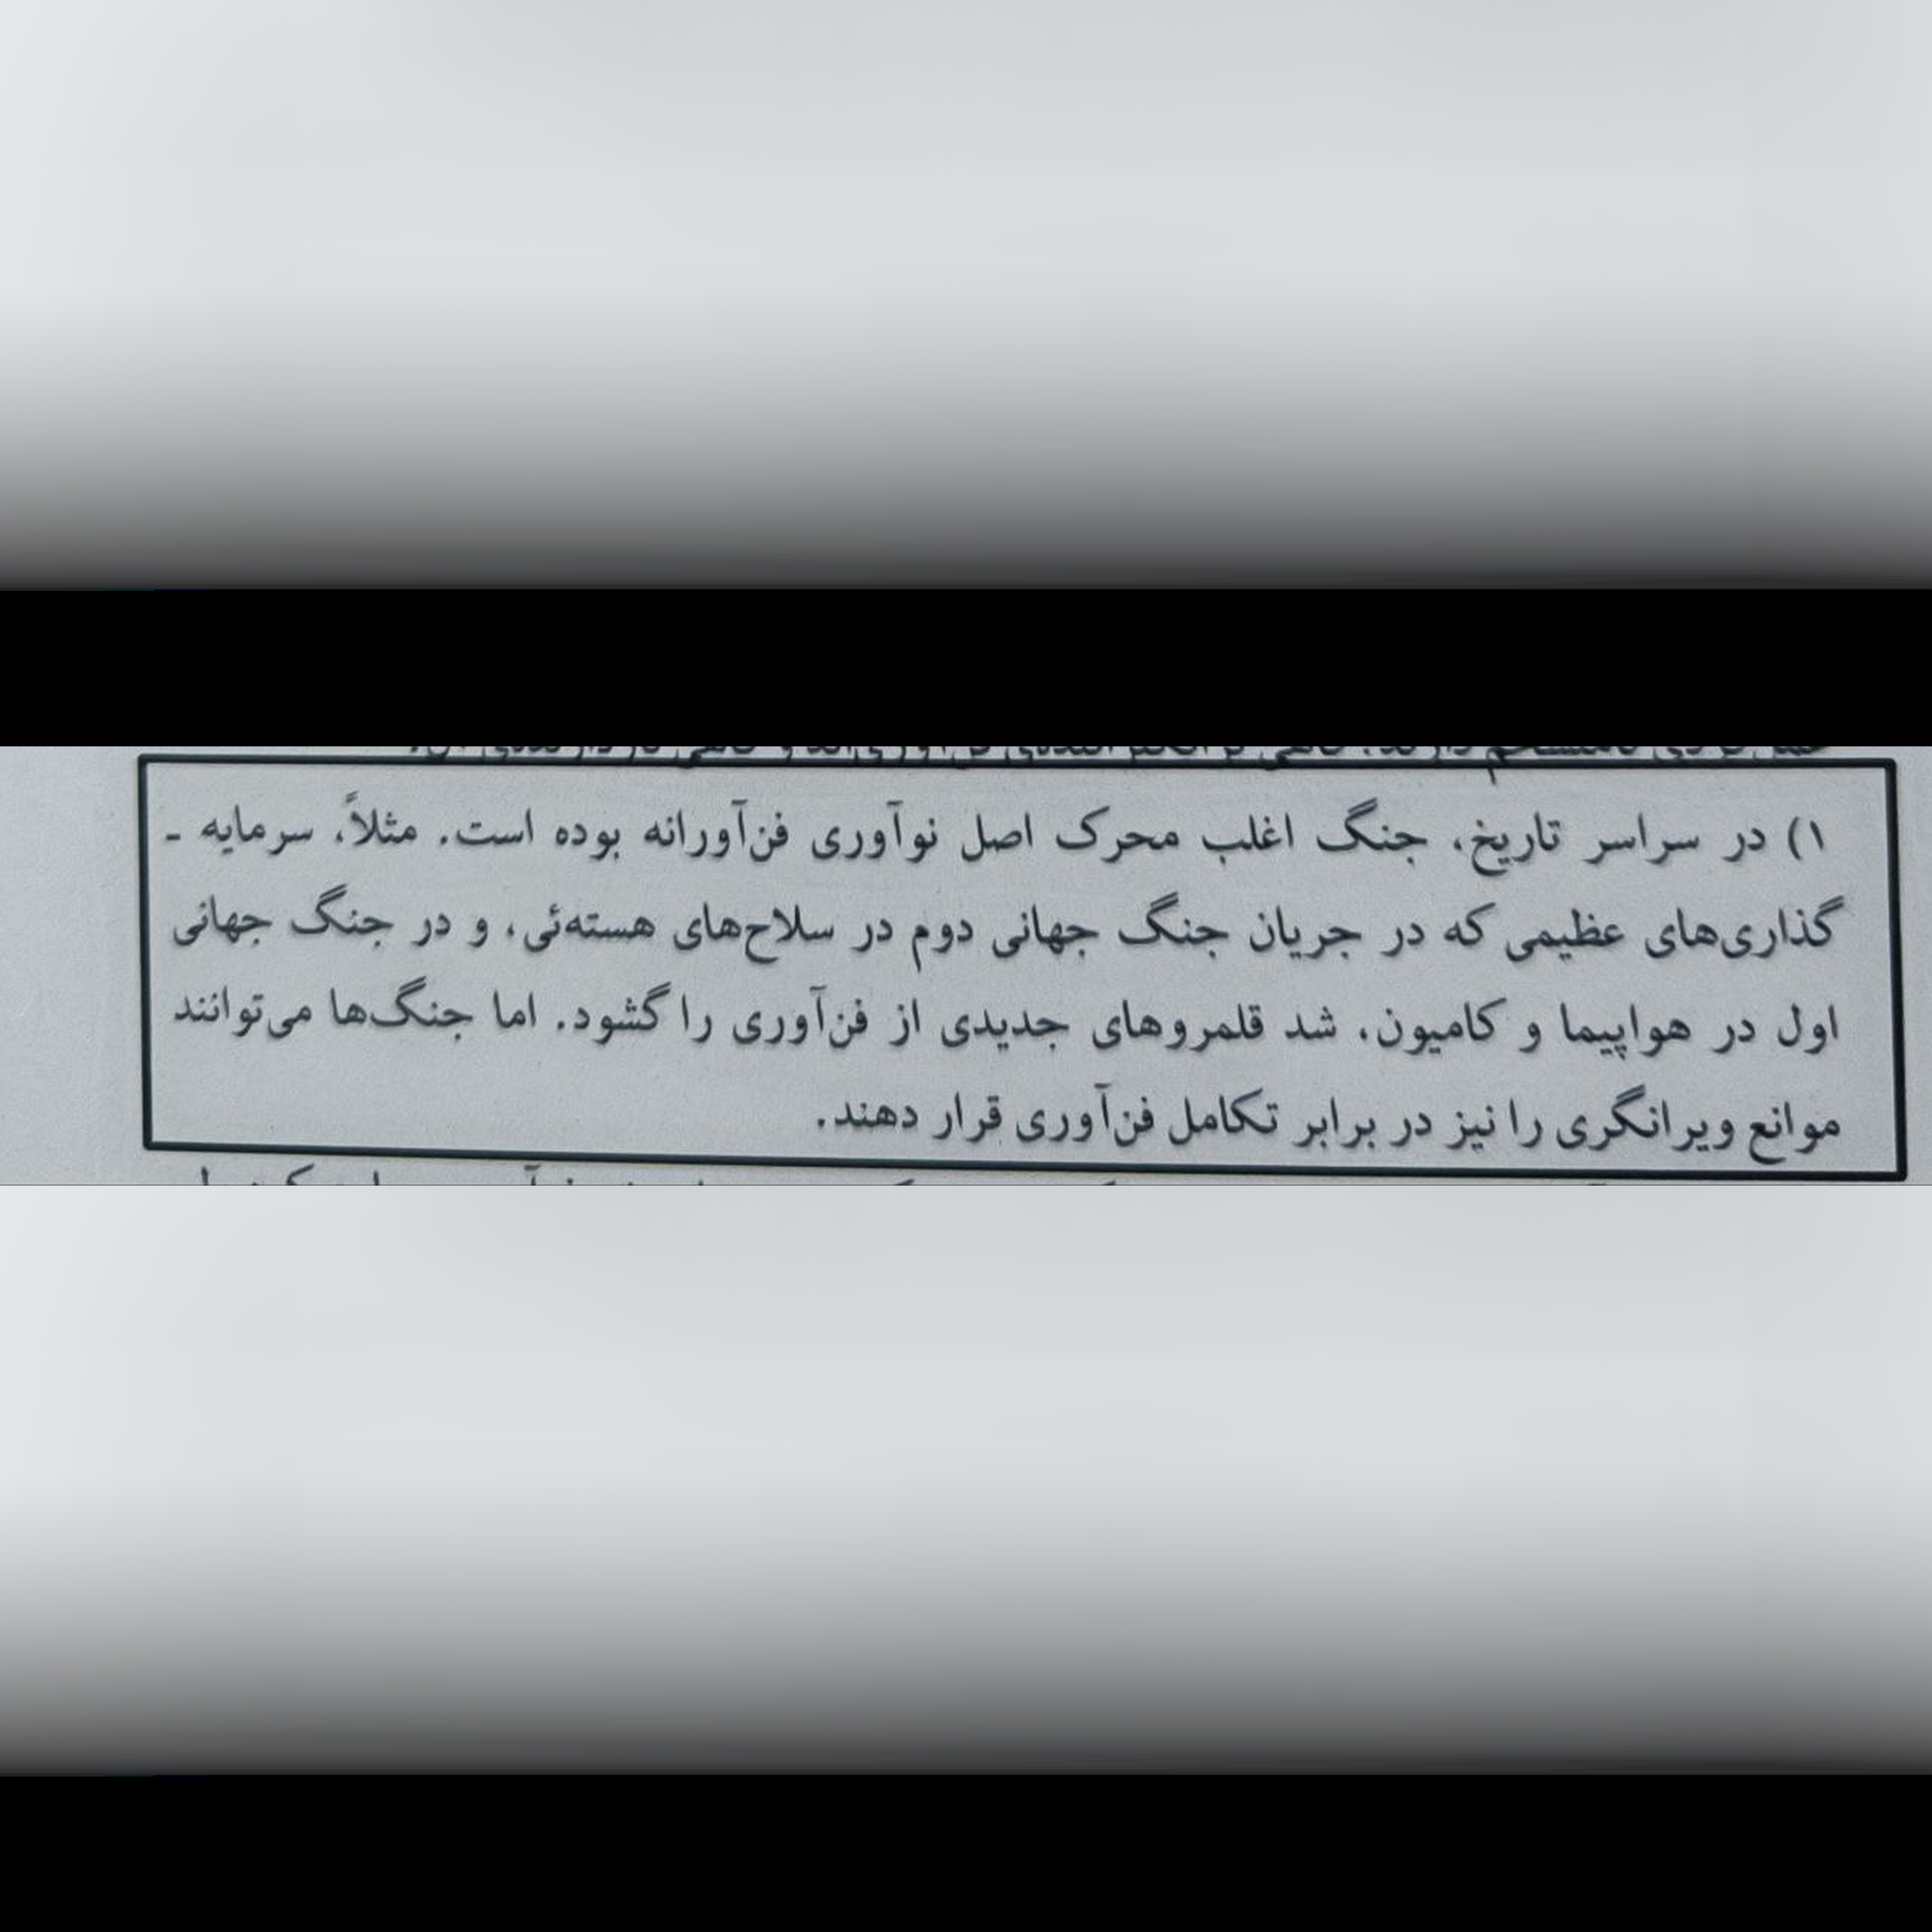 ۱) در سراسر تاریخ، جنگ اغلب محرک اصل نوآوری فن‌آورانه بوده است. مثلاً، سرمایه -
گذاری‌های عظیمی که در جریان جنگ جهانی دوم در سلاح‌های هسته‌ئی، و در جنگ جهانی
اول در هواپیما و کامیون، شد قلمروهای جدیدی از فن‌آوری را گشود. اما جنگ‌ها می‌توانند
موانع ویرانگری را نیز در برابر تکامل فن‌آوری قرار دهند.